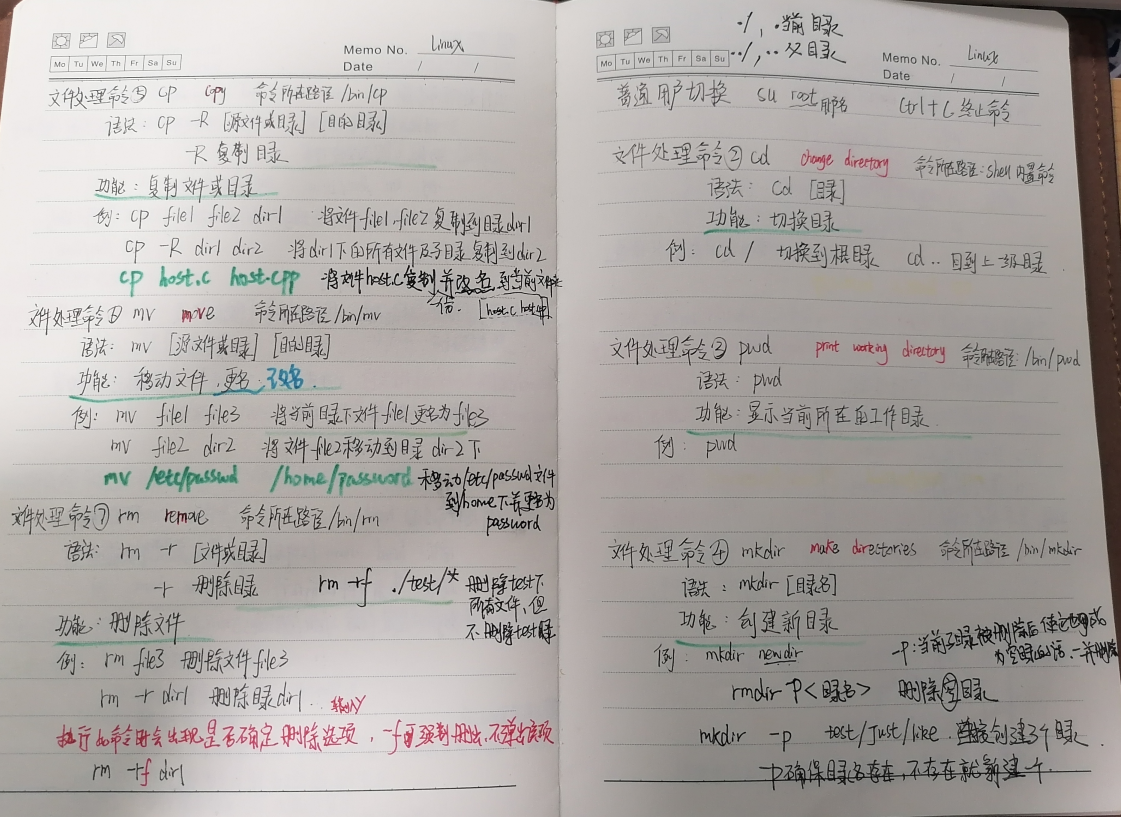 Memo No. Linux
Mo Tu We Th Fr Sa Su
Date / /
文件处理命令⑤ cp copy 命令所在路径 /bin/cp
语法: cp -R [源文件或目录] [目的目录]
-R 复制目录
功能: 复制文件或目录
例: cp file1 file2 dir1 将文件file1、file2复制到目录dir1
cp -R dir1 dir2 将dir1下的所有文件及子目录复制到dir2
cp host.c host.cpp 将文件host.c复制并改名到当前文件
[host.c host.cpp]
文件处理命令⑥ mv move 命令所在路径 /bin/mv
语法: mv [源文件或目录] [目的目录]
功能: 移动文件,更名.改名.
例: mv file1 file3 将当前目录下文件file1更名为file3
mv file2 dir2 将文件file2移动到目录dir2下
mv /etc/passwd /home/password 移动/etc/passwd文件
到/home下并更名为
password
文件处理命令⑦ rm remove 命令所在路径 /bin/rm
语法: rm -r [文件或目录]
-r 删除目录 rm -rf ./test/* 删除test下
所有文件,但
不删除test目录
功能: 删除文件
例: rm file3 删除文件file3
rm -r dir1 删除目录dir1.
执行此命令时会出现是否确定删除选项, -f可强制删除,不弹出选项
rm -rf dir1
./, .当前目录
../, ..父目录
Memo No. Linux
Mo Tu We Th Fr Sa Su
Date / /
普通用户切换 su root 用户名 Ctrl+C 终止命令
文件处理命令② cd change directory 命令所在路径: shell内置命令
语法: cd [目录]
功能: 切换目录
例: cd / 切换到根目录 cd .. 回到上一级目录
文件处理命令③ pwd print working directory 命令所在路径: /bin/pwd
语法: pwd
功能: 显示当前所在的工作目录.
例: pwd
文件处理命令④ mkdir make directories 命令所在路径 /bin/mkdir
语法: mkdir [目录名]
功能: 创建新目录
例: mkdir newdir
-p: 当前子目录被删除后使它也成
为空目录的话,一并删除
rmdir -P <目录名> 删除空目录
mkdir -p test/Just/like. 创建3个目录.
-p确保目录名存在,不存在就新建一个.